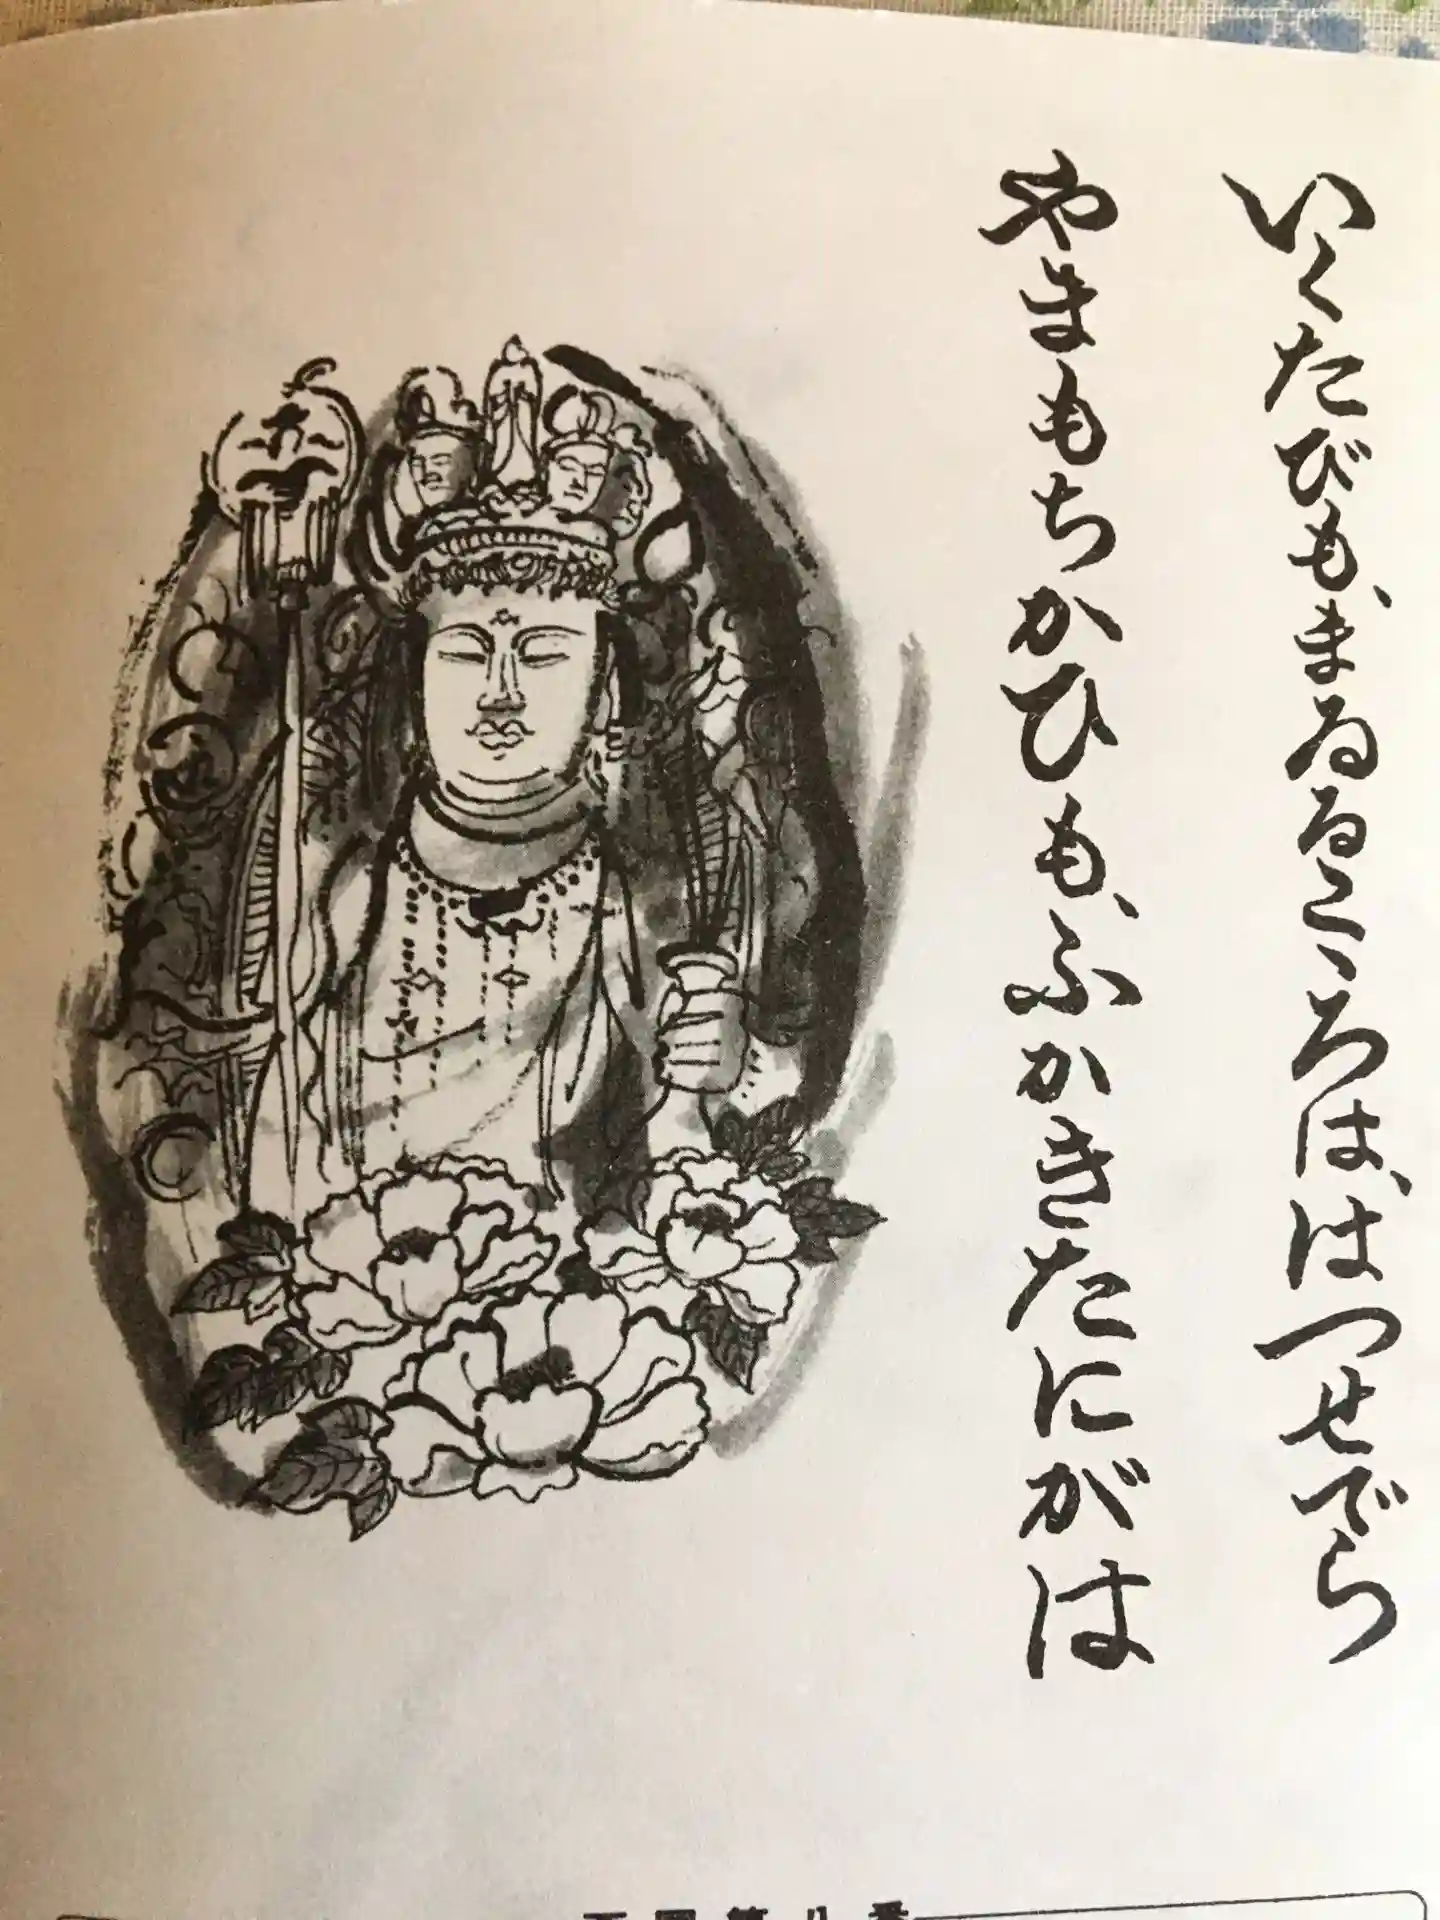 いくたびも、まゐるこゝろは、はつせでら
やまもちかひも、ふかきたにがは
西国第八番